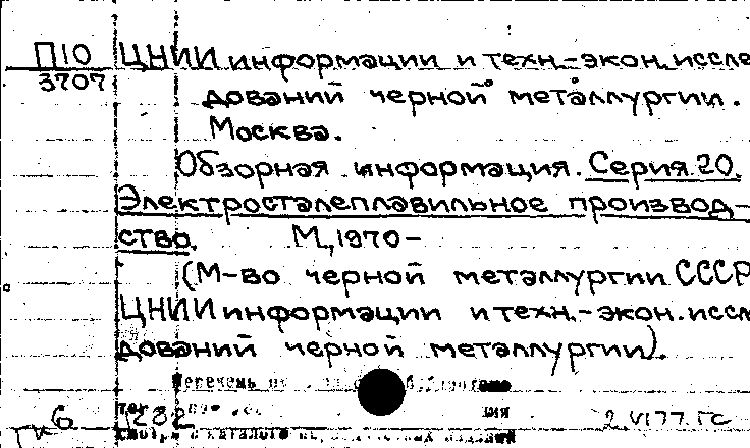 П10 ЦНИИ информации и техн.-экон. иссле
3707 дований черной металлургии.
Москва.
Обзорная информация. Серия 20.
Электросталеплавильное производ-
ство. М., 1970 –
(М-во черной металлургии СССР
ЦНИИ информации и техн.-экон. иссл
дований черной металлургии).
Перечень
6 282 2.VI77.ГС
смотри в каталоге изданий